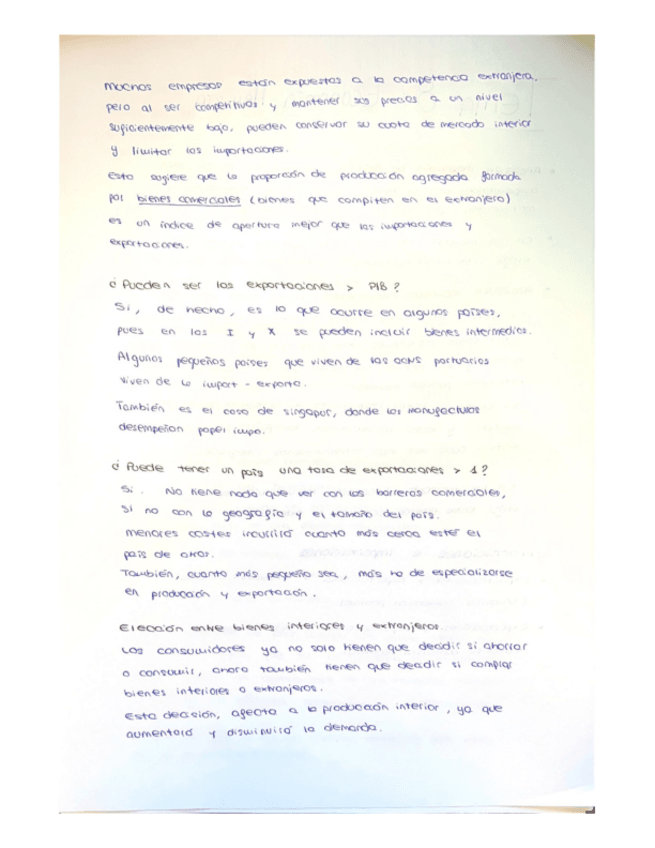 Muchas empresas están expuestas a la competencia extranjera,
pero al ser competitivas y mantener sus precios a un nivel
suficientemente bajo, pueden conservar su cuota de mercado interior
y limitar las importaciones.
Esto sugiere que la proporción de producción agregada formada
por bienes comerciales (bienes que compiten en el extranjero)
es un índice de apertura mejor que las importaciones y
exportaciones.
¿Pueden ser las exportaciones > PIB?
Sí, de hecho, es lo que ocurre en algunos países,
pues en las I y X se pueden incluir bienes intermedios.
Algunos pequeños países que viven de las portuarias
viven de la import - exporta.
También es el caso de singapur, donde las manufacturas
desempeñan papel impo.
¿Puede tener un país una tasa de exportaciones > 1?
Sí. No tiene nada que ver con las barreras comerciales,
si no con la geografía y el tamaño del país.
menores costes incurrirá cuanto más cerca esté el
país de otros.
También, cuanto más pequeño sea, más ha de especializarse
en producción y exportación.
Elección entre bienes interiores y extranjeros.
Los consumidores ya no solo tienen que decidir si ahorrar
o consumir, ahora también tienen que decidir si comprar
bienes interiores o extranjeros.
Esta decisión, afecta a la producción interior, ya que
aumentará y disminuirá la demanda.